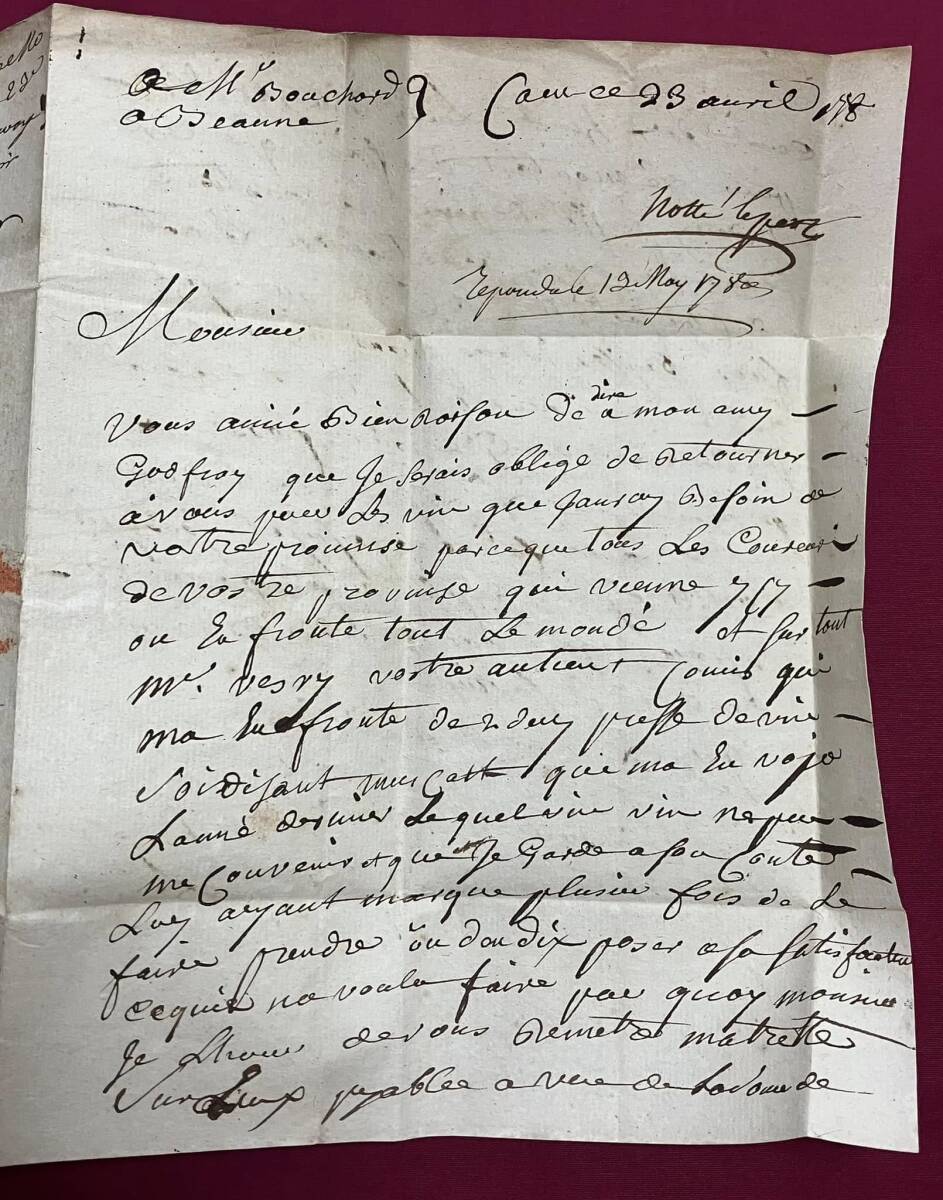 Mr Bouchard
a Beaune
Caen ce 23 avril 178
Notté
repondu le 13 May 1780
Monsieur
Vous avié Bien Raison de dire a mon amy
Godfroy que Je serais obligé de Retourner
a vous pour Les vin que Jauray Besoin de
vostre provinse parce que tous Les Coureur
de vostre provinse qui vienne ysy
on En fronte tout Le monde et sur tout
Mr. vesry vostre antient Comis qui
ma En fronte de 2 demy piesse de vin
soidisant muscatt que ma En vojé
Lanné dernier Lequel vin vin ne peu
me Convenir et que Je Garde a son Conte
Luy ayant marque plusieu fois de Le
faire prendre ou dan dix poser a sa satisfaction
ce quil na voulu faire par quoy monsieu
Je Lhoneur de vous Remetre ma trette
sur Luy payable a vue de La some de